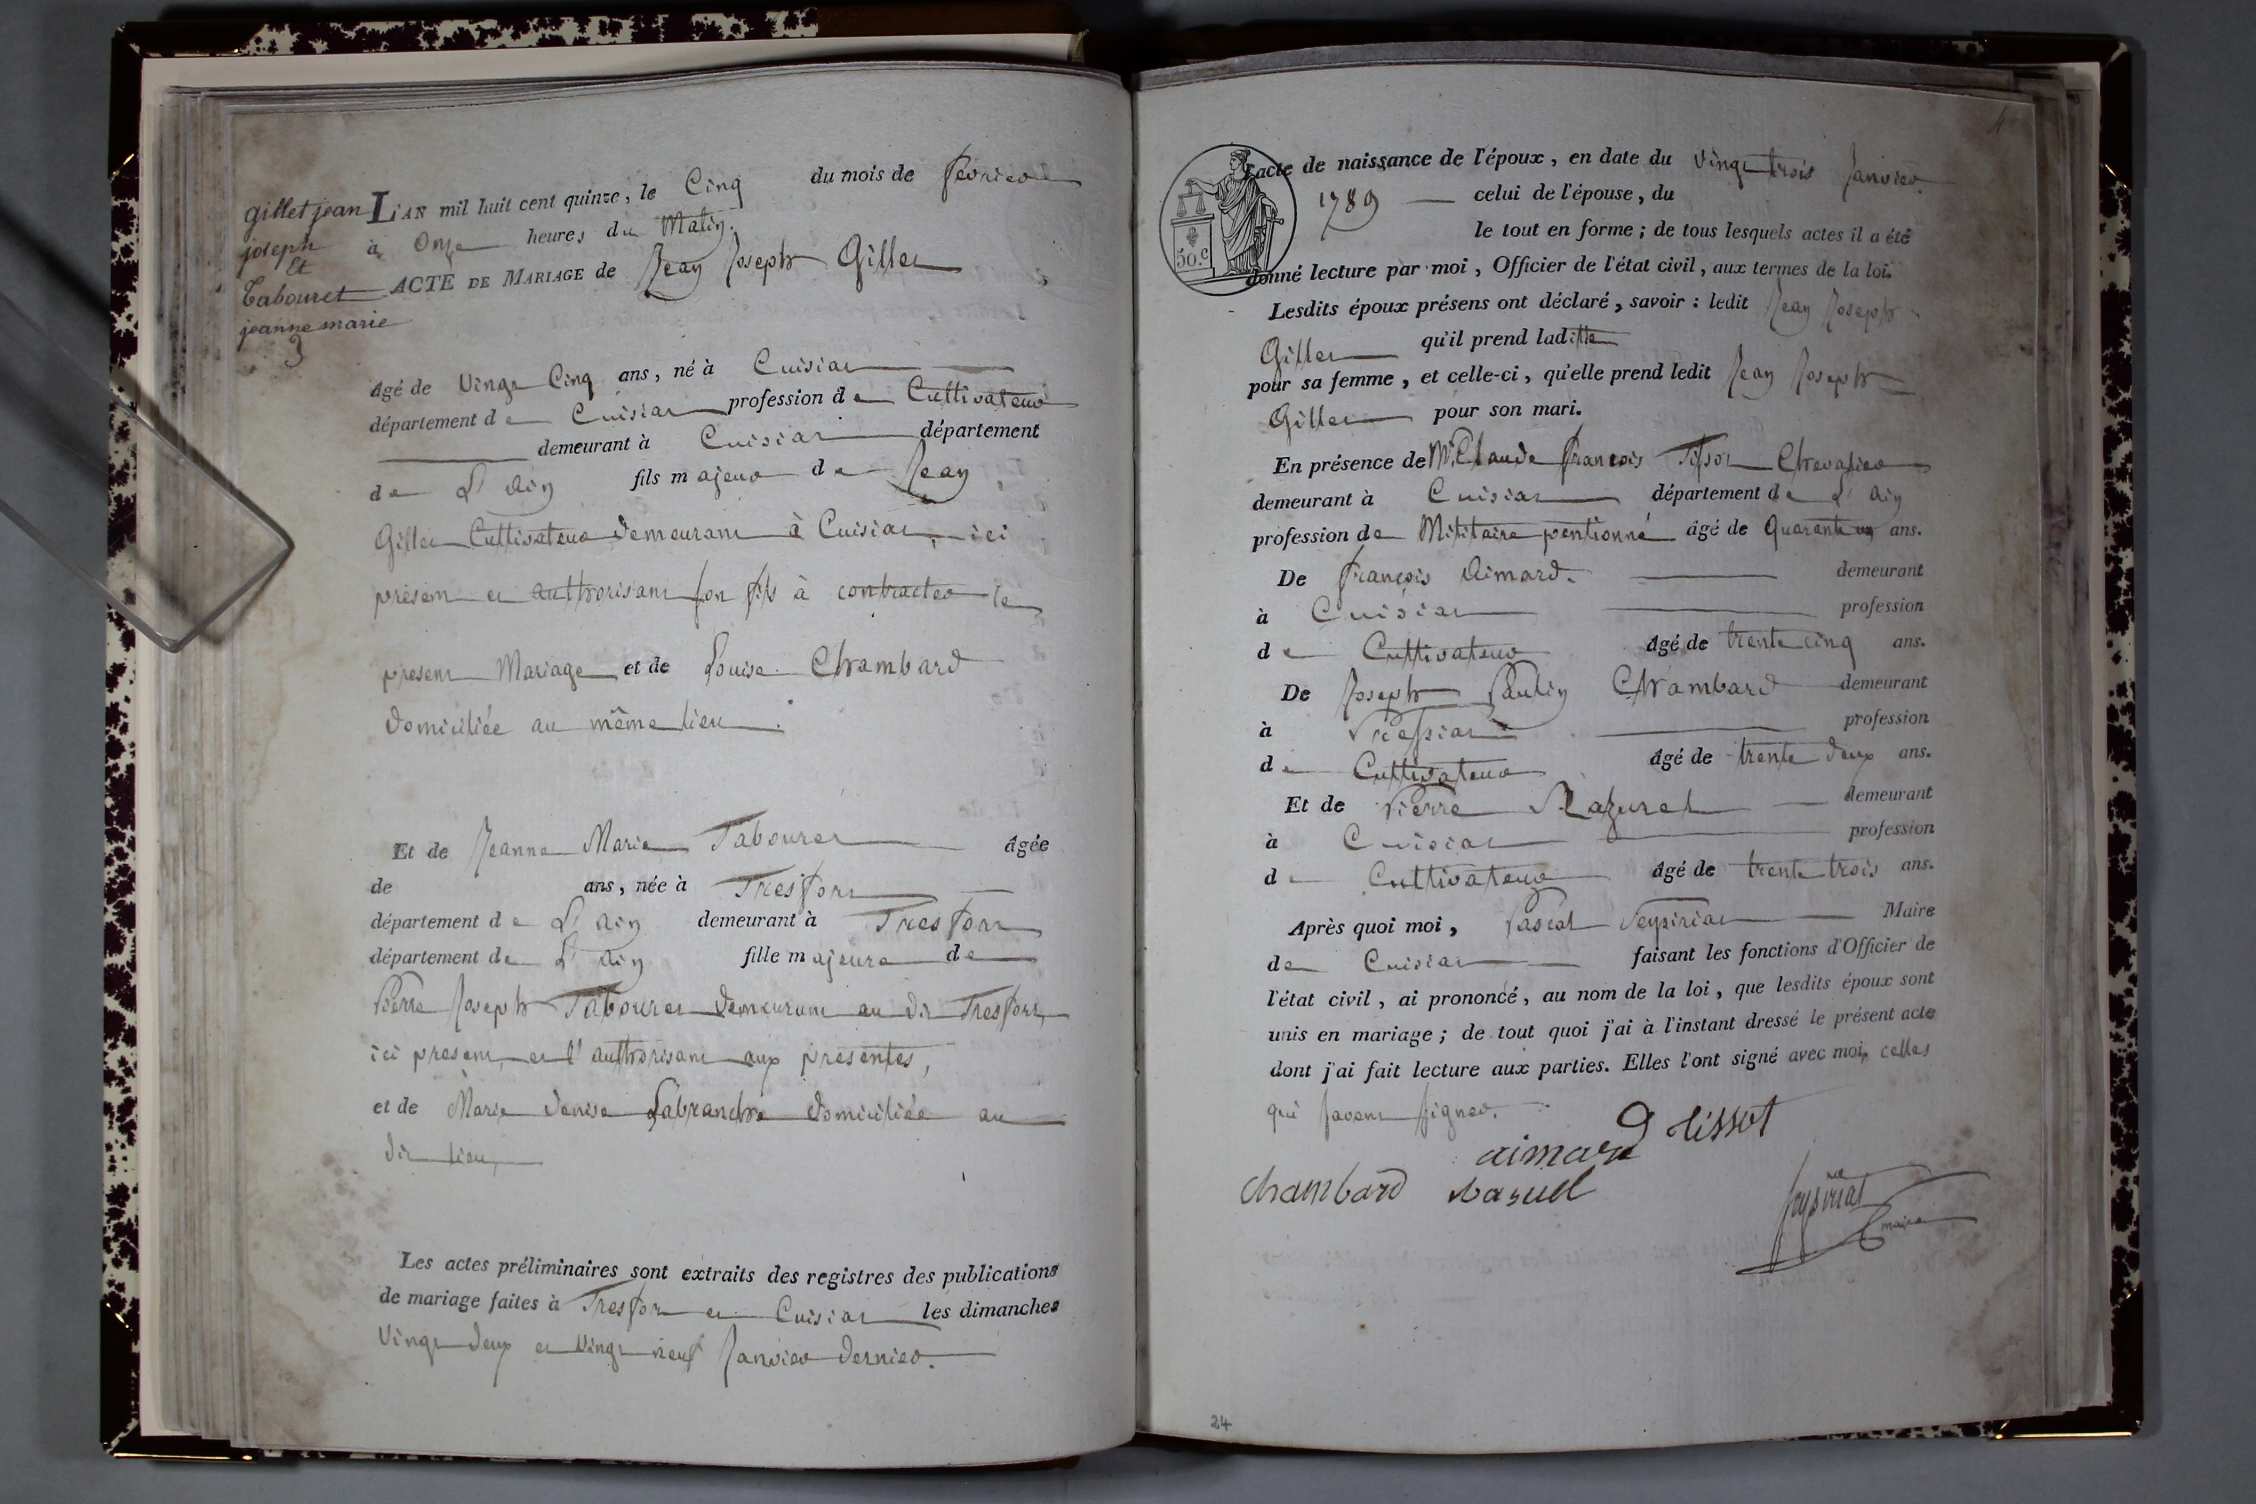 gillet jean
joseph
Et
Tabouret
jeanne marie
3
L'AN mil huit cent quinze, le Cinq du mois de février
à Onze heures du Matin.
ACTE DE MARIAGE de Jean Joseph Gillet
âgé de vingt Cinq ans, né à Cuisiat
département de Cuisiat profession de Cultivateur
demeurant à Cuisiat département
de L'ain fils majeur de Jean
Gillet Cultivateur demeurant à Cuisiat, ici
présent et authorisant son fils à contracter le
présent Mariage et de Louise Chambard
domiciliée au même lieu.
Et de Jeanne Marie Tabouret âgée
de ans, née à Tresfort
département de L'ain demeurant à Tresfort
département de L'ain fille majeure de
Pierre Joseph Tabouret demeurant au dit Tresfort,
ici présent et l'authorisant aux présentes,
et de Marie denise domiciliée au
dit lieu,
Les actes préliminaires sont extraits des registres des publications
de mariage faites à Tresfort et Cuisiat les dimanches
vingt deux et vingt neuf Janvier dernier.
l'acte de naissance de l'époux, en date du vingt trois Janvier
1789 celui de l'épouse, du
le tout en forme; de tous lesquels actes il a été
donné lecture par moi, Officier de l'état civil, aux termes de la loi.
50.c
Lesdits époux présens ont déclaré, savoir: ledit Jean Joseph
Gillet qu'il prend laditte
pour sa femme, et celle-ci, qu'elle prend ledit Jean Joseph
Gillet pour son mari.
En présence de Mr. Claude françois Tissot Chevalier
demeurant à Cuisiat département de L'ain
profession de Militaire pentionné âgé de Quarante un ans.
De françois Aimard. demeurant
à Cuisiat profession
de Cultivateur âgé de trente cinq ans.
De Joseph Paulin Chambard demeurant
à Pressiat profession
de Cultivateur âgé de trente deux ans.
Et de Pierre Mazuret demeurant
à Cuisiat profession
de Cultivateur âgé de trente trois ans.
Après quoi moi, Pascal Seyssiriat Maire
de Cuisiat faisant les fonctions d'Officier de
l'état civil, ai prononcé, au nom de la loi, que lesdits époux sont
unis en mariage; de tout quoi j'ai à l'instant dressé le présent acte
dont j'ai fait lecture aux parties. Elles l'ont signé avec moi, celles
qui savent signer.
aimard tissot
chambard
maire
24